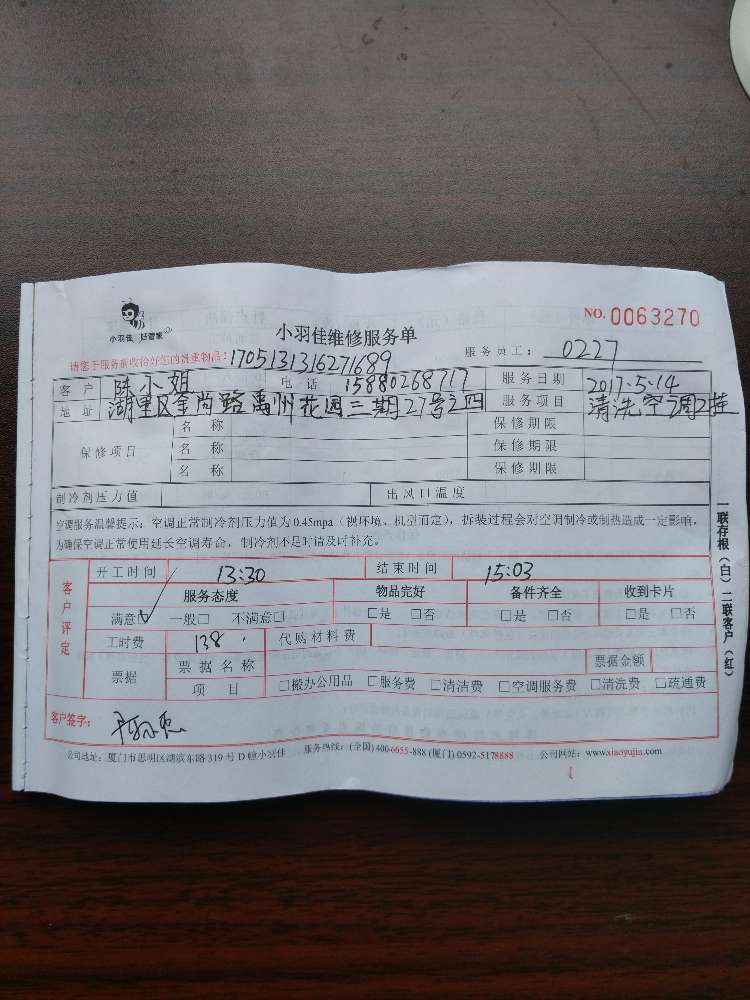 小羽佳 好管家
小羽佳维修服务单
NO. 0063270
请您于服务前收拾好您的贵重物品: 1705131316271689
服务员工: 0227
客户 陈小姐 电话 15880268717 服务日期 2017-5-14
地址 湖里区金尚路禹州花园三期27号之四 服务项目 清洗空调2挂
保修项目
名称 保修期限
名称 保修期限
名称 保修期限
制冷剂压力值 出风口温度
空调服务温馨提示: 空调正常制冷剂压力值为0.45mpa（视环境、机型而定），拆装过程会对空调制冷或制热造成一定影响，
为确保空调正常使用延长空调寿命，制冷剂不足时请及时补充。
客户评定
开工时间 13:30 结束时间 15:03
服务态度 物品完好 备件齐全 收到卡片
满意☑ 一般□ 不满意□ □是 □否 □是 □否 □是 □否
工时费 138 代购材料费
票据 票据名称 票据金额
项目 □搬办公用品 □服务费 □清洁费 □空调服务费 □清洗费 □疏通费
客户签字:
公司地址: 厦门市思明区湖滨东路319号D幢小羽佳 服务热线: (全国)400-6655-888 (厦门) 0592-5178888 公司网站: www.xiaoyujia.com
一联存根（白）二联客户（红）